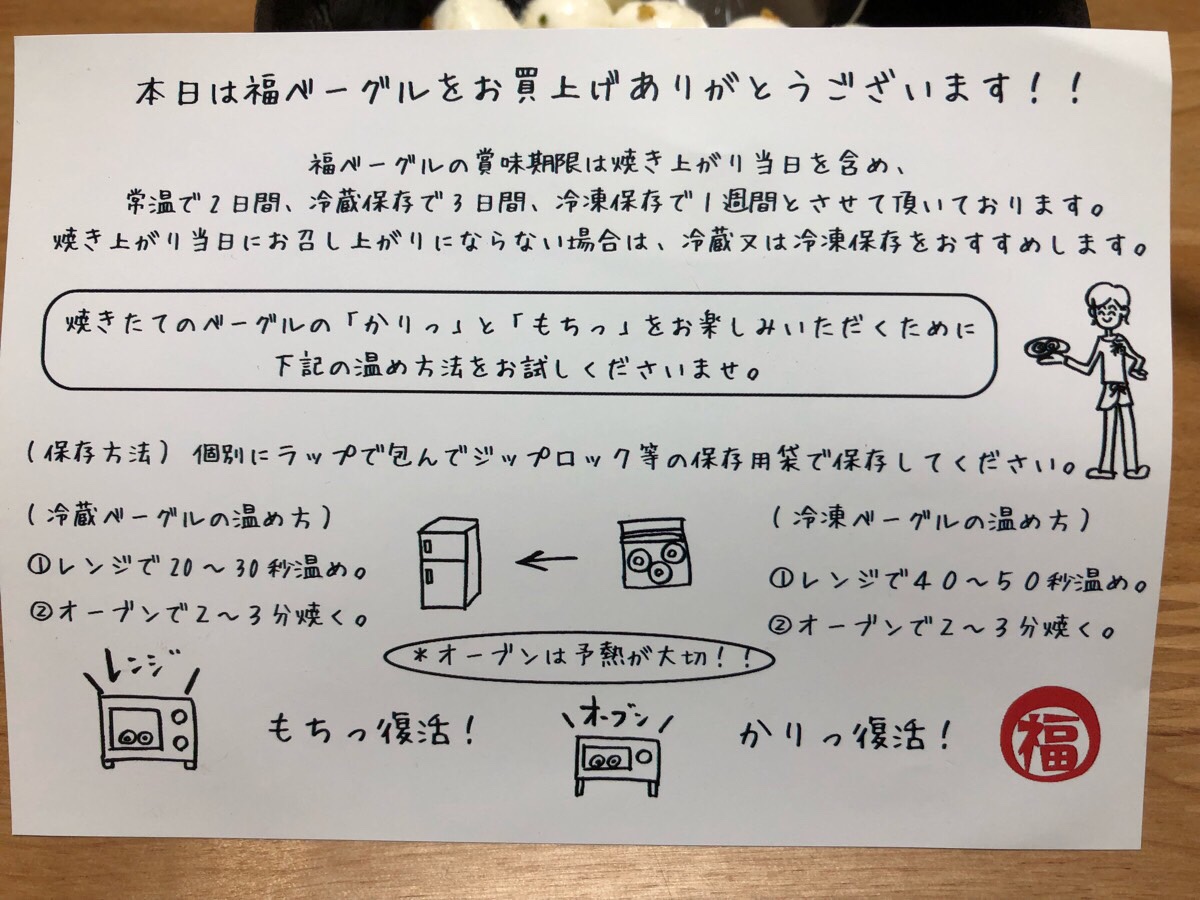 本日は福ベーグルをお買上げありがとうございます！！
福ベーグルの賞味期限は焼き上がり当日を含め、
常温で2日間、冷蔵保存で3日間、冷凍保存で1週間とさせて頂いております。
焼き上がり当日にお召し上がりにならない場合は、冷蔵又は冷凍保存をおすすめします。
焼きたてのベーグルの「かりっ」と「もちっ」をお楽しみいただくために
下記の温め方法をお試しくださいませ。
(保存方法) 個別にラップで包んでジップロック等の保存用袋で保存してください。
(冷蔵ベーグルの温め方)
①レンジで20〜30秒温め。
②オーブンで2〜3分焼く。
(冷凍ベーグルの温め方)
①レンジで40〜50秒温め。
②オーブンで2〜3分焼く。
*オーブンは予熱が大切！！
レンジ
もちっ復活！
オーブン
かりっ復活！
福